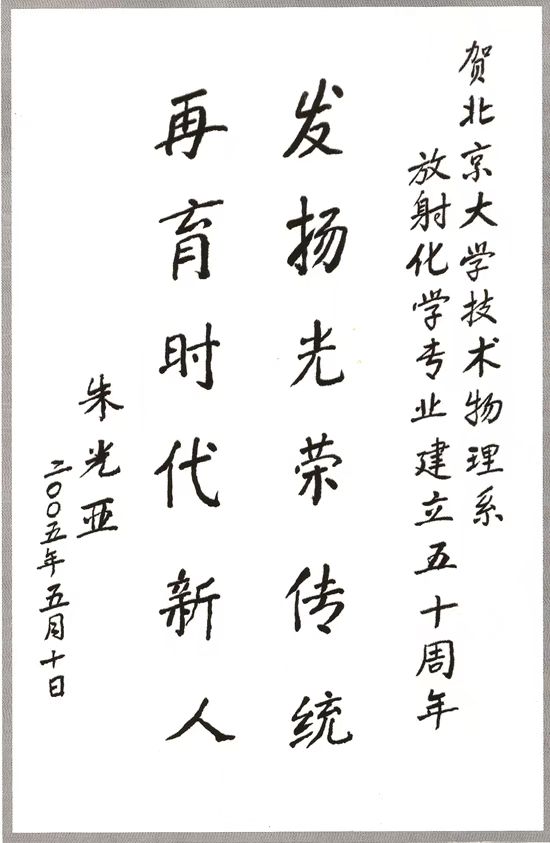 贺北京大学技术物理系
放射化学专业建立五十周年
发扬光荣传统
再育时代新人
朱光亚
二〇〇五年五月十日